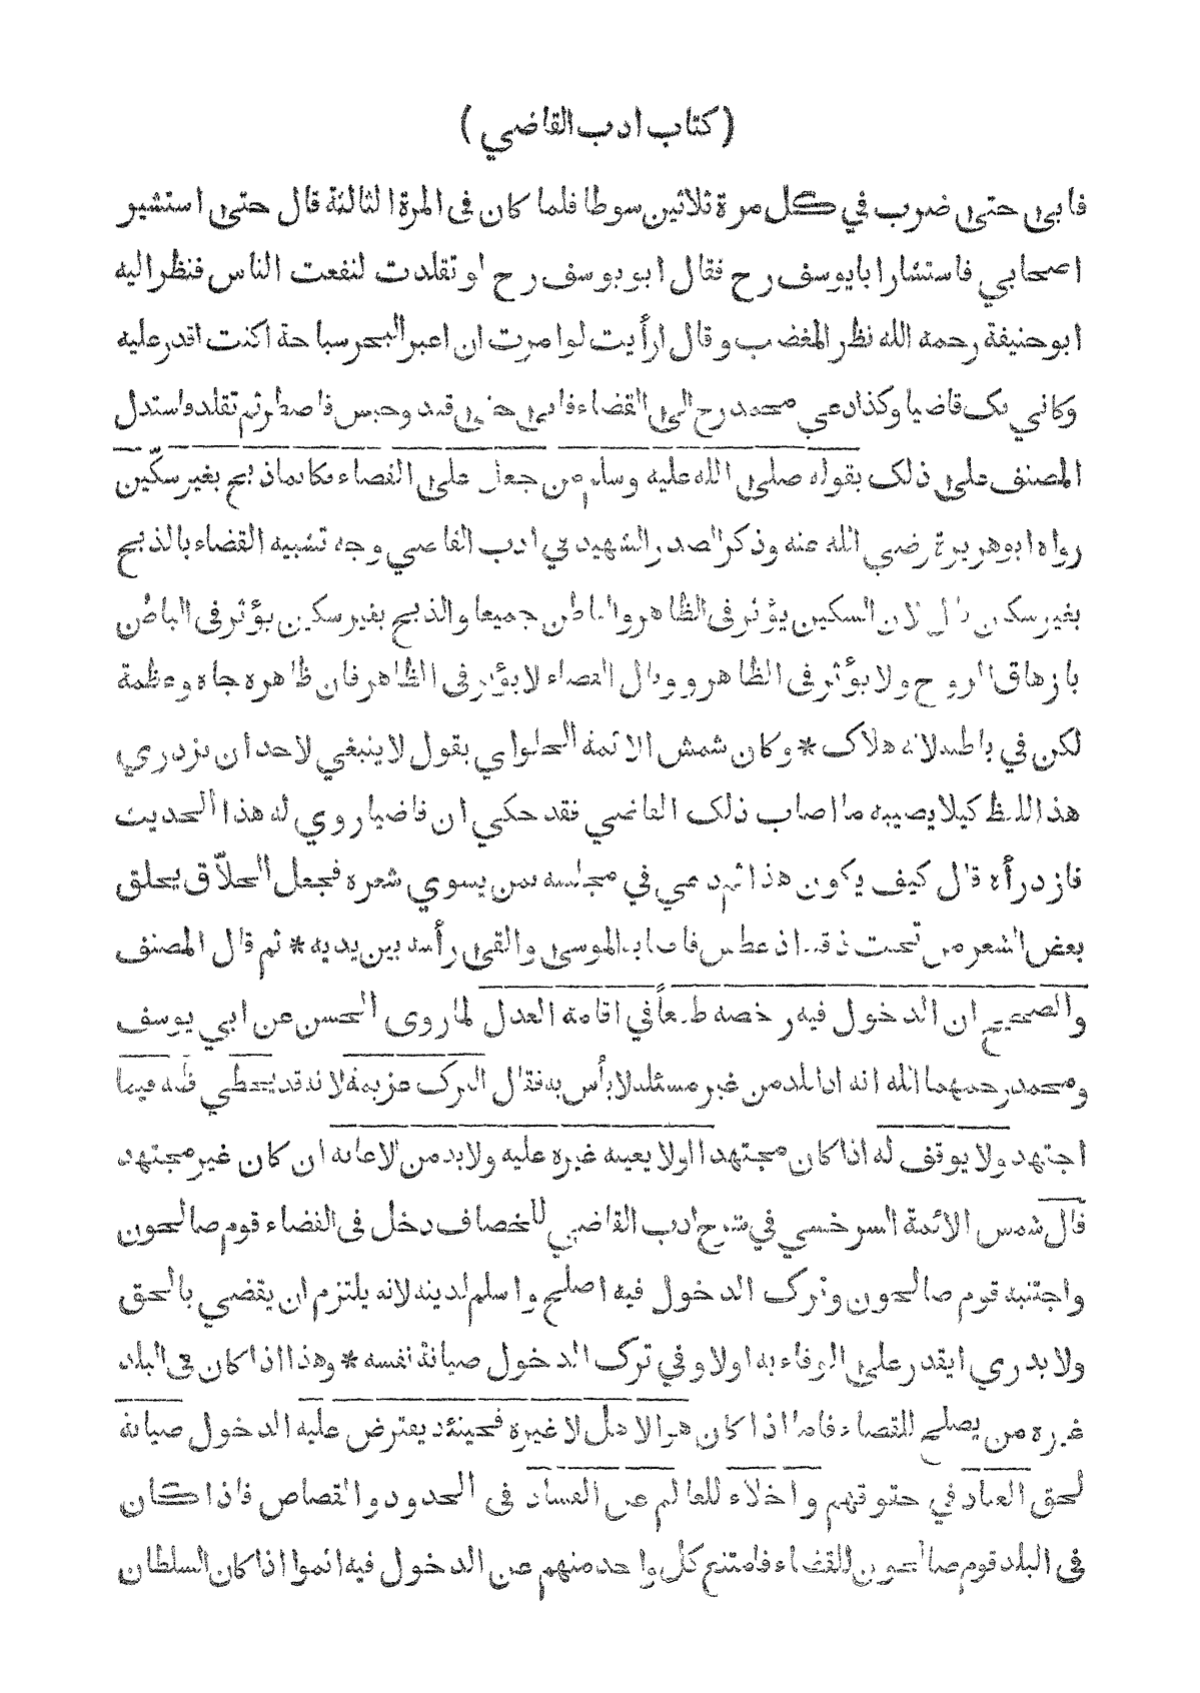 ( كتاب ادب القاضي )
فابى حتى ضرب في كل مرة ثلاثين سوطا فلما كان فى المرة الثالثة قال حتى استشير
اصحابي فاستشار ابا يوسف رح فقال ابو يوسف رح لو تقلدت لنفعت الناس فنظر اليه
ابو حنيفة رحمه الله نظر المغضب وقال ارأيت لو امرت ان اعبر البحر سباحة اكنت اقدر عليه
وكاني بك قاضيا وكذا دعي محمد رح الى القضاء فابى حتى قيد وحبس فاضطر ثم تقلد واستدل
المصنف على ذلك بقوله صلى الله عليه وسلم من جعل على القضاء فكانما ذبح بغير سكّين
رواه ابو هريرة رضي الله عنه وذكر الصدر الشهيد في ادب القاضي وجه تشبيه القضاء بالذبح
بغير سكين قال لان السكين يؤثر فى الظاهر والباطن جميعا والذبح بغير سكين يؤثر فى الباطن
بازهاق الروح ولا يؤثر فى الظاهر ووبال القضاء لا يؤثر فى الظاهر فان ظاهره جاه وعظمة
لكن في باطنه هلاك * وكان شمس الائمة الحلوائي يقول لا ينبغي لاحد ان يزدري
هذا اللفظ كيلا يصيبه ما اصاب ذلك القاضي فقد حكي ان قاضيا روي له هذا الحديث
فازدرأه قال كيف يكون هذا ثم دعي في مجلسه بمن يسوي شعره فجعل الحلاّق يحلق
بعض الشعر من تحت ذقنه اذ عطس فاصابه الموسى والقى رأسه بين يديه * ثم قال المصنف
والصحيح ان الدخول فيه رخصه طمعاً في اقامة العدل لما روى الحسن عن ابي يوسف
ومحمد رحمهما الله انه اذا قلد من غير مسئلة لا بأس به فقال الترك عزيمة لانه قد يخطي ظنه فيما
اجتهد ولا يوفق له اذا كان مجتهدا اولا يعينه غيره عليه ولابد من الاعانه ان كان غير مجتهد
قال شمس الائمة السرخسي في شرح ادب القاضي للخصاف دخل فى القضاء قوم صالحون
واجتنبه قوم صالحون وترك الدخول فيه اصلح واسلم لدينه لانه يلتزم ان يقضي بالحق
ولا يدري ايقدر على الوفاء به اولا وفي ترك الدخول صيانة نفسه * وهذا اذا كان فى البلد
غيره من يصلح للقضاء فاما اذا كان هو الاهل لا غيره فحينئذ يفترض عليه الدخول صيانة
لحق العباد في حقوقهم واخلاء للعالم عن الفساد فى الحدود والقصاص فاذا كان
فى البلد قوم صالحون للقضاء فامتنع كل واحد منهم عن الدخول فيه اثموا اذا كان السلطان